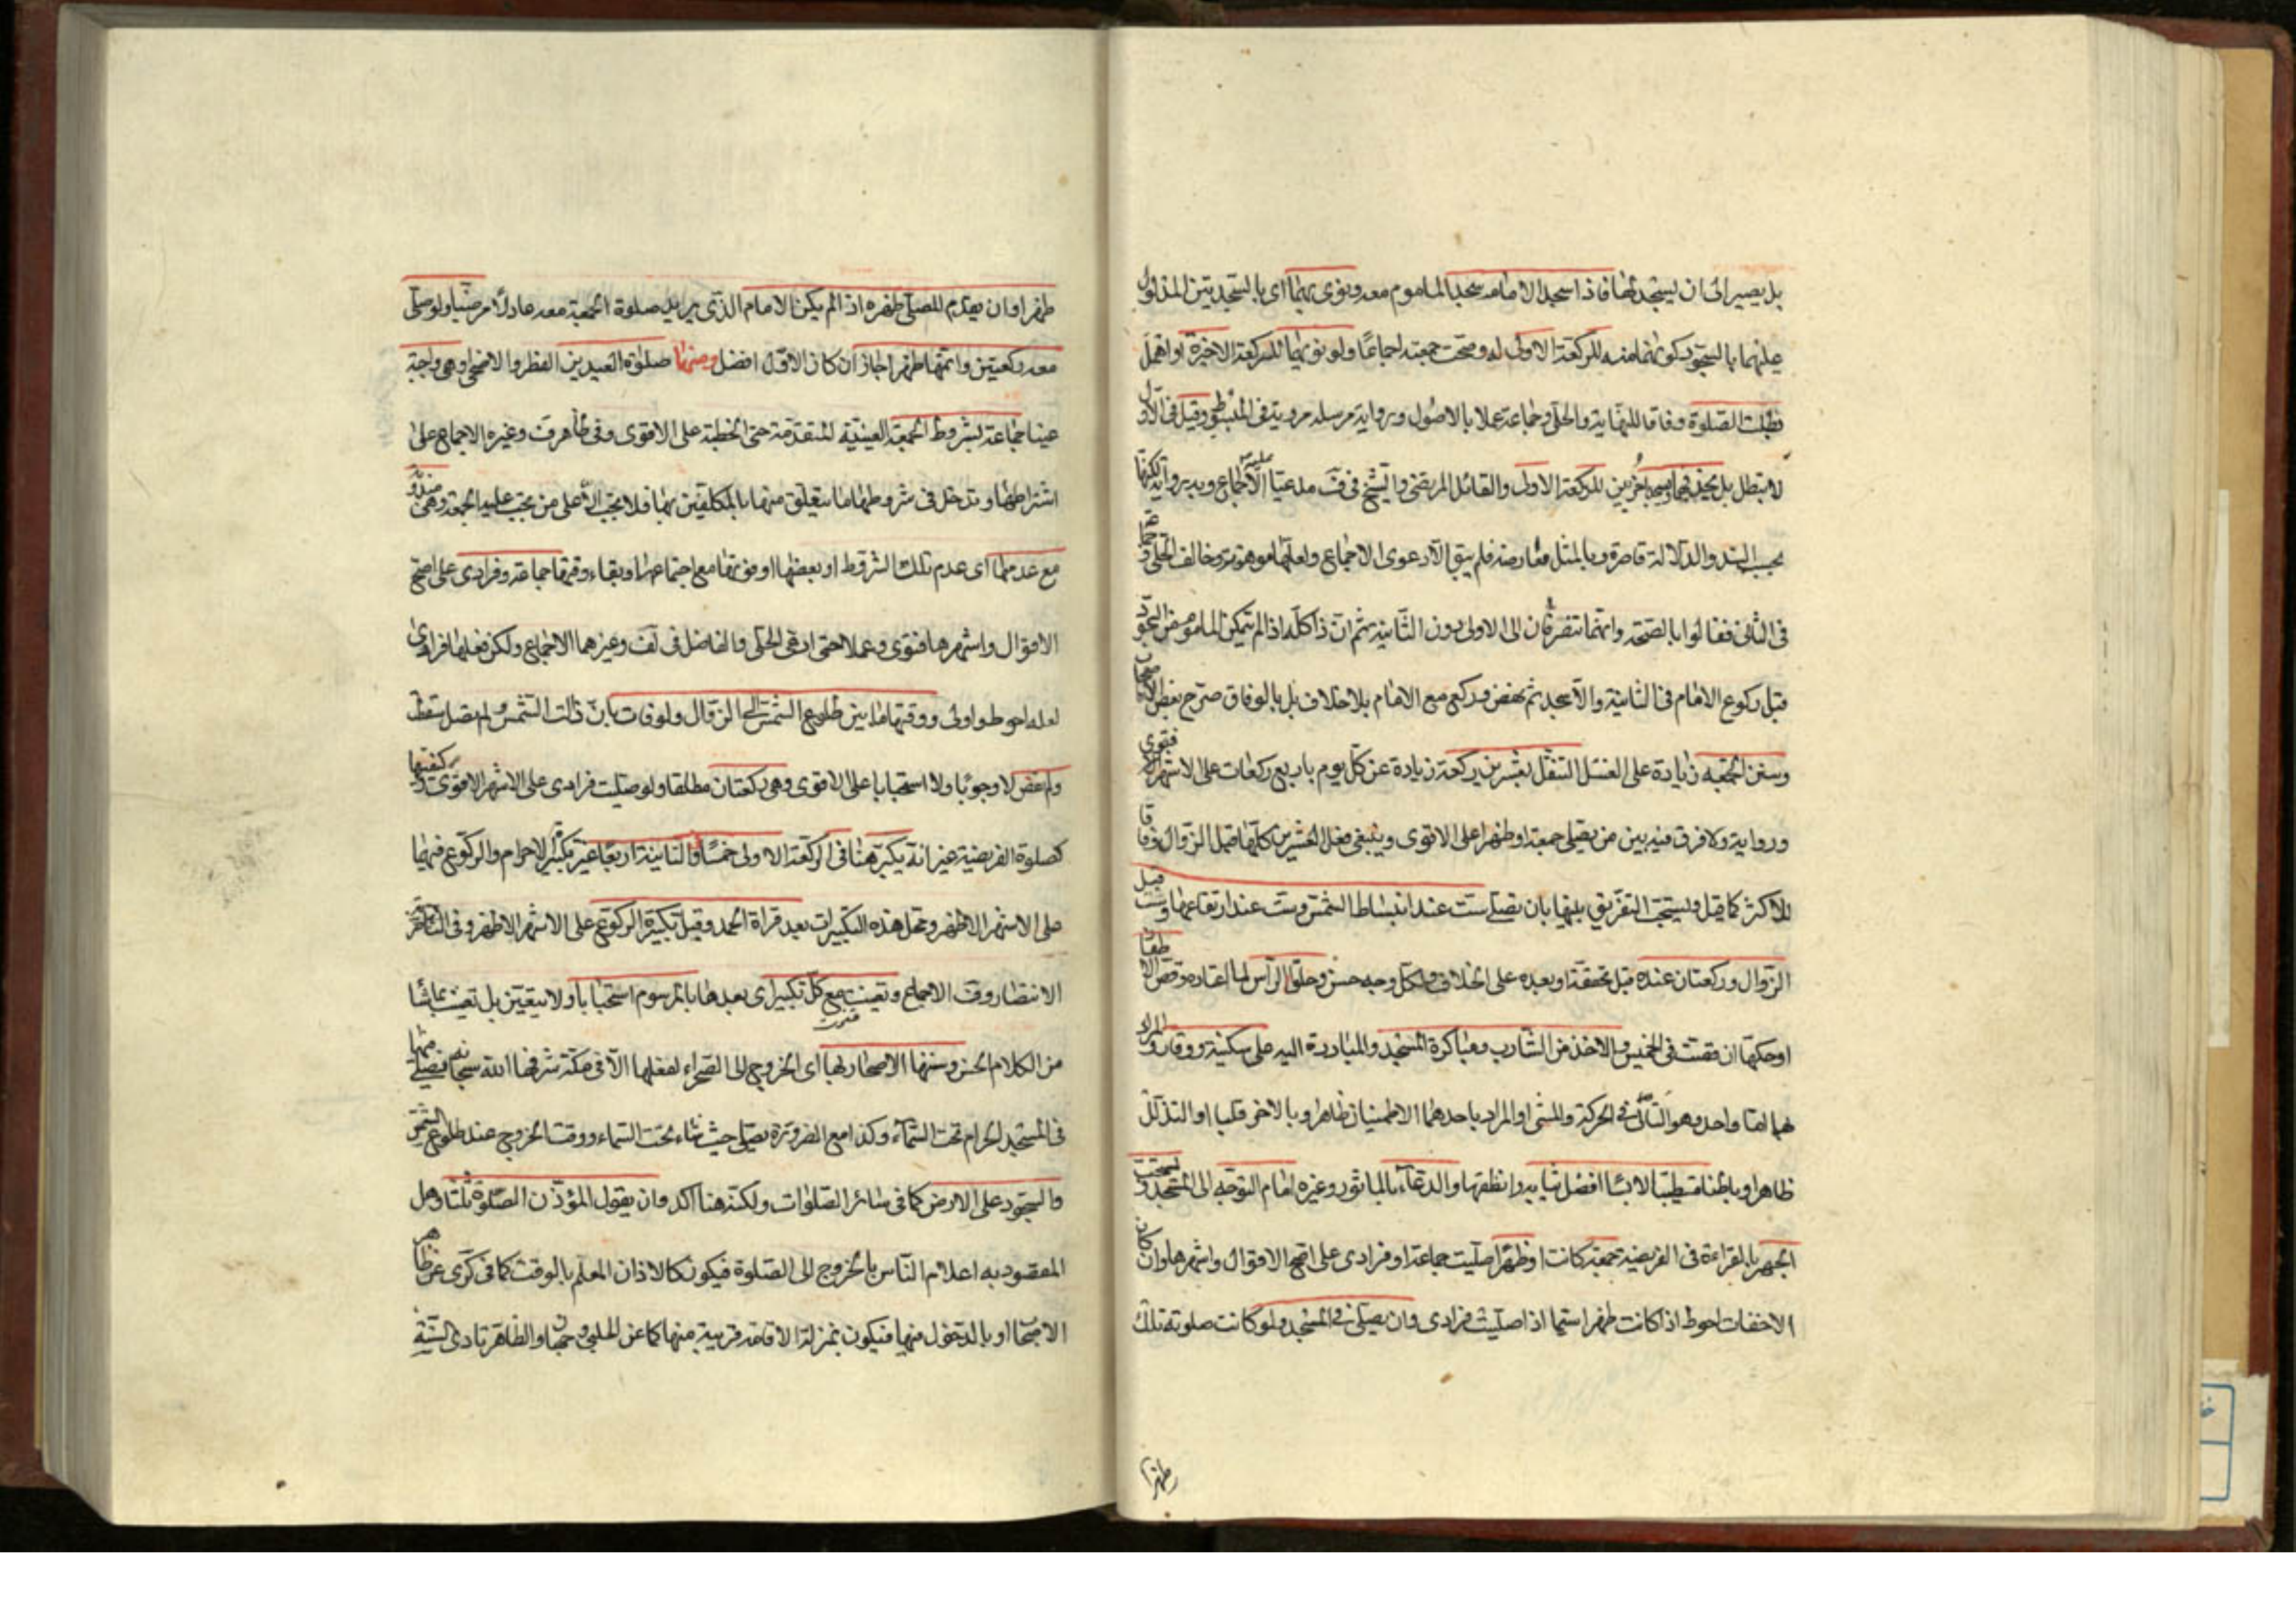 بل يصير الى ان يسجد لها فاذا سجد الامام سجد الماموم معه وينوى بهما اى بالسجدتين المدلول
عليهما بالسجود كونهما منه للركعة الاولى له وصحت جمعته اجماعًا ولو نوى بهما للركعة الاخيرة او اهمل
بطلت الصلوة وفاقا للنهاية والحلى وجماعة عملا بالاصول ورواية مرسله مروية فى المبسوط وقيل فى الاول
لا تبطل بل يحذفهما ويسجد اخريين للركعة الاولى والقائل المرتضى والشيخ فى ف مدعيا عليه الاجماع وبه رواية لكنها
بحسب السند والدلالة قاصرة وبالمثل معارضه فلم يبق الا دعوى الاجماع ولعلها موهونة وخالف الحلى وجماعة
فى الثانى فقالوا بالصحة وانهما تنصرفان الى الاولى دون الثانية ثم ان ذا كله اذا لم يتمكن الماموم من السجود
قبل ركوع الامام فى الثانية والا سجد ثم نهض وركع مع الامام بلا خلاف بل بالوفاق صرح بعض الاصحاب
وسنن الجمعة زيادة على الغسل التنفل بعشرين ركعة زيادة عن كل يوم باربع ركعات على الاشهر فتوى
ورواية ولا فرق فيه بين من يصلى جمعة او ظهرا على الاقوى وينبغى فعل العشرين كلها قبل الزوال وفاقا
للاكثر كما قيل ويستحب التفريق بينها بان يصلى ست عند انبساط الشمس وست عند ارتفاعها وست قبل
الزوال وركعتان عنده قبل تحققه او بعده على الخلاف ولكل وجه حسن وحلق الراس لمن اعتاده وقص الاظفار
او حكها ان قصت فى الخميس والاخذ من الشارب ومباكرة المسجد والمبادرة اليه على سكينة ووقار والمراد
بهما اما واحد وهو التانى فى الحركة والمشى او المراد باحدهما الاطمينان ظاهرا وبالاخر قلبا او التذلل
ظاهرا وباطنا متطيبا لابسا افضل ثيابه وانظفها والدعاء بالماثور وغيره امام التوجه الى المسجد ويستحب
الجهر بالقراءة فى الفريضة جمعة كانت او ظهرا صليت جماعة او فرادى على اصح الاقوال واشهرها وان كان
الاخفات احوط اذا كانت ظهرا سيما اذا صليت فرادى وان يصلى فى المسجد ولو كانت صلوته تلك
ظهرا
ظهرا وان يقدم المصلى ظهره اذا لم يكن الامام الذى يريد صلوة الجمعة معه عادلًا مرضيا ولو صلى
معه ركعتين واتمهما ظهرا جاز ان كان الاول افضل ومنها صلوة العيدين الفطر والاضحى وهى واجبة
عينا جماعة بشروط الجمعة العينية المتقدمة حتى الخطبة على الاقوى وفى ظاهر ف وغيره الاجماع على
اشتراطها وتدخل فى شروطها ما يتعلق منها بالمكلفين بها فلا تجب الا على من يجب عليه الجمعة وهى مندوبة
مع عدمها اى عدم تلك الشروط او بعضها او فوتها مع اجتماعها وبقاء وقتها جماعة وفرادى على اصح
الاقوال واشهرها فتوى وعملا حتى ادعى الحلى والفاضل فى لف وغيرهما الاجماع ولكن فعلها فرادى
لعله احوط واولى ووقتها ما بين طلوع الشمس الى الزوال ولو فات بان زالت الشمس ولم تصل سقطت
ولم تقض لا وجوبًا ولا استحبابا على الاقوى وهى ركعتان مطلقا ولو صليت فرادى على الاشهر الاقوى كيفيتها
كصلوة الفريضة غير انه يكبر هنا فى الركعة الاولى خمسًا وفى الثانية اربعًا غير تكبيرة الاحرام والركوع فيهما
على الاشهر الاظهر ومحل هذه التكبيرات بعد قراءة الحمد وقبل تكبيرة الركوع على الاشهر الاظهر وفى
الانتصار وف الاجماع ويقنت مع كل تكبيرة اى بعدها بالمرسوم استحبابا ولا يتعين بل يقنت بما شاء
من الكلام الحسن وسننها الاصحار بها اى الخروج الى الصحراء لفعلها الا فى مكة شرفها الله سبحانه فيصلى
فى المسجد الحرام تحت السماء وكذا مع الضرورة يصلى حيث شاء تحت السماء ووقت الخروج عند طلوع الشمس
والسجود على الارض كما فى سائر الصلوات ولكنه هنا آكد وان يقول المؤذن الصلوة ثلثا وهل
المقصود به اعلام الناس بالخروج الى الصلوة فيكون كالاذان المعلم بالوقت كما فى كرى عن ظاهر
الاصحاب او بالدخول فيها فيكون بمنزلة الاقامة قريبة منها كما عن الحلبى وجهان والظاهر تادى السنة